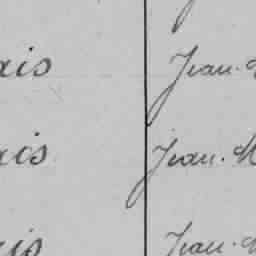 ais Jean. M
ais Jean. M
ais Jean. M